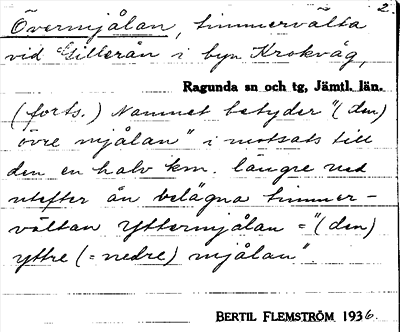 2.
Övermjålan, timmervälta
vid Gillerån i byn Krokvåg,
Ragunda sn och tg, Jämtl. län.
(forts.) Namnet betyder "(den)
övre mjålan" i motsats till
den en halv km. längre ned
utefter ån belägna timmer-
vältan Yttermjålan = "(den)
yttre (= nedre) mjålan".
BERTIL FLEMSTRÖM 1936.